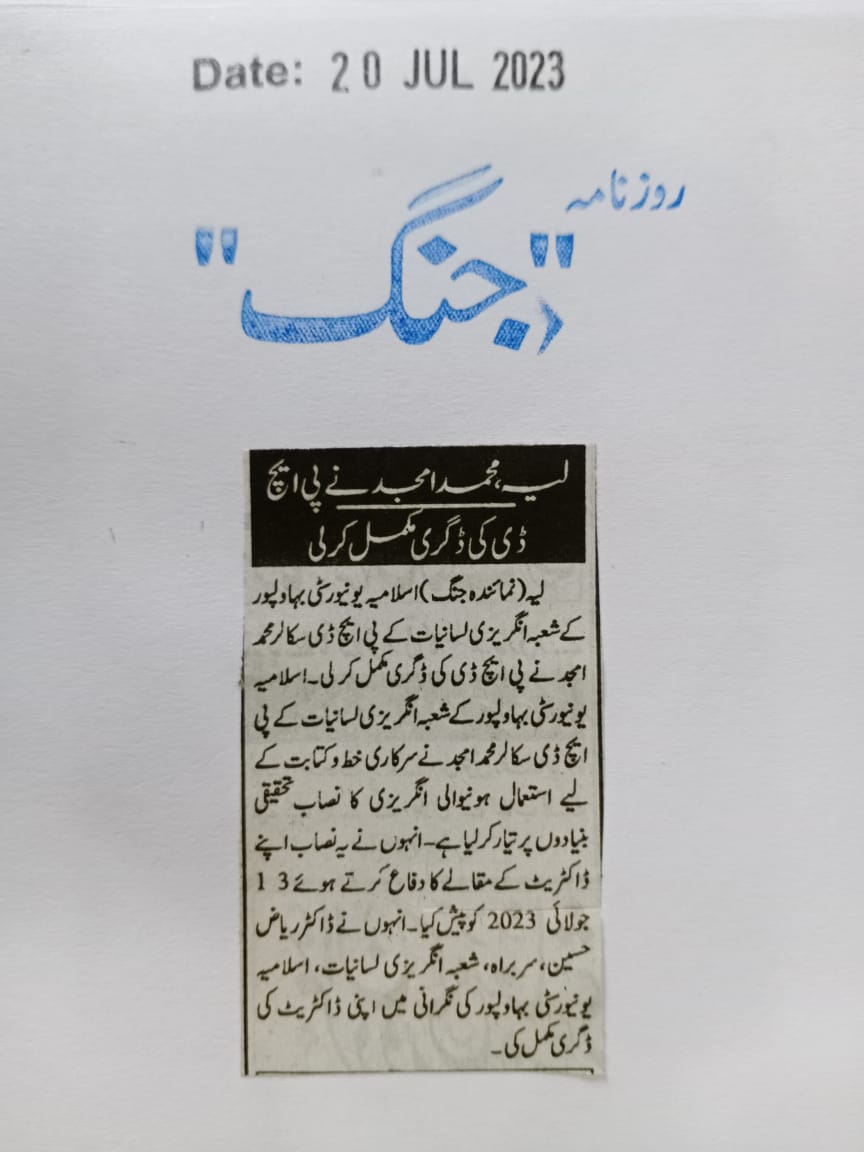 Date: 20 JUL 2023
روزنامہ
"جنگ"
لیہ، محمد امجد نے پی ایچ
ڈی کی ڈگری مکمل کرلی
لیہ (نمائندہ جنگ) اسلامیہ یونیورسٹی بہاولپور
کے شعبہ انگریزی لسانیات کے پی ایچ ڈی سکالر محمد
امجد نے پی ایچ ڈی کی ڈگری مکمل کر لی۔ اسلامیہ
یونیورسٹی بہاولپور کے شعبہ انگریزی لسانیات کے پی
ایچ ڈی سکالر محمد امجد نے سرکاری خط و کتابت کے
لیے استعمال ہونیوالی انگریزی کا نصاب تحقیقی
بنیادوں پر تیار کرلیا ہے۔ انہوں نے یہ نصاب اپنے
ڈاکٹریٹ کے مقالے کا دفاع کرتے ہوئے 13
جولائی 2023 کو پیش کیا۔ انہوں نے ڈاکٹر ریاض
حسین، سربراہ، شعبہ انگریزی لسانیات، اسلامیہ
یونیورسٹی بہاولپور کی نگرانی میں اپنی ڈاکٹریٹ کی
ڈگری مکمل کی۔